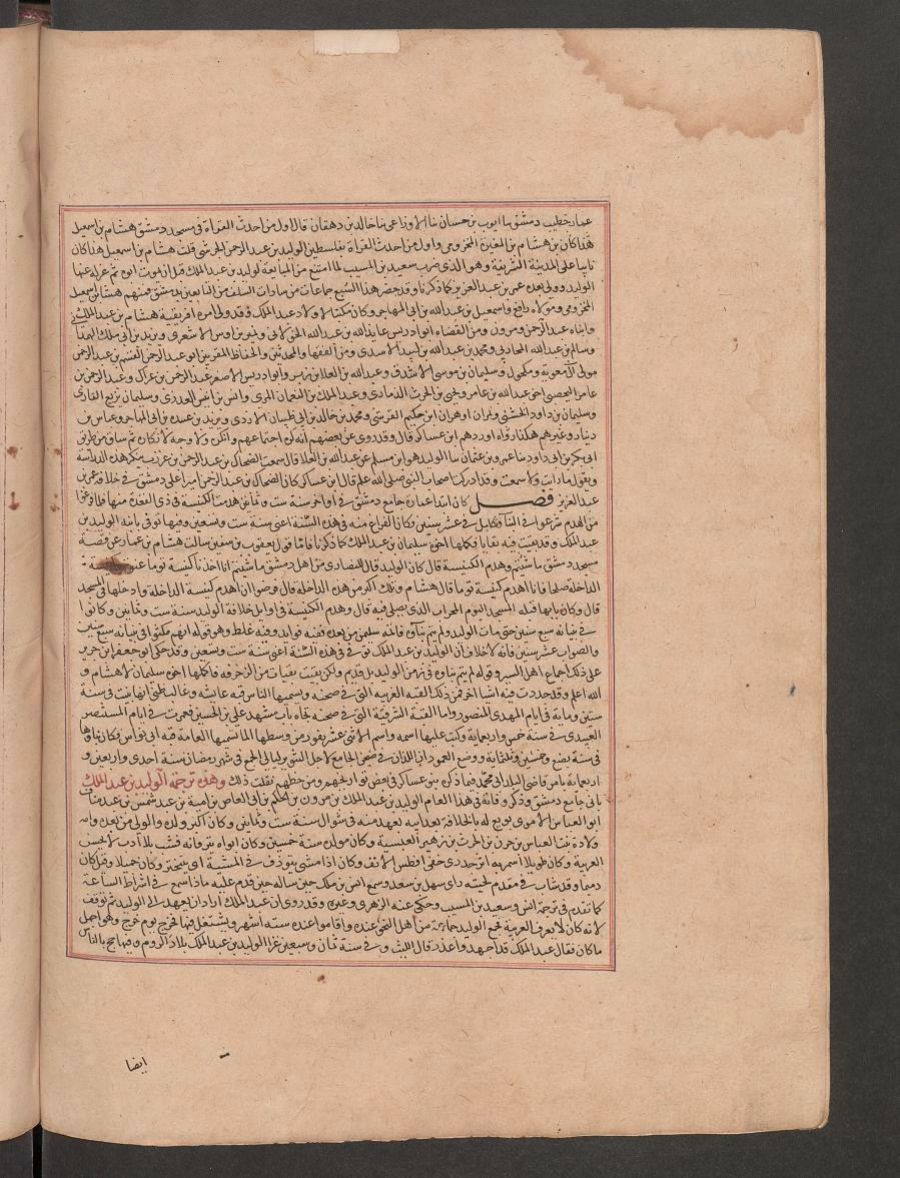 عمار خطيب دمشق ما ايوب بن حسان نا الاوزاعي نا خالد بن دهقان قال اول من احدث القراة في مسجد دمشق هشام بن اسمعيل
هذا كان بن هشام بن المغيرة المخزومي واول من احدث القراة بفلسطين الوليد بن عبد الرحمن الجرشي قلت هشام بن اسمعيل هذا كان
نايبا على المدينة الشريفة وهو الذي ضرب سعيد بن المسيب لما امتنع من المبايعة لوليد بن عبد الملك قبل ان يموت ابوه ثم عزله عنها
الوليد وولى بعده عمر بن عبد العزيز كما ذكرنا وقد حضر هذا السبع جماعات من سادات السلف من التابعين بدمشق منهم هشام بن اسمعيل
المخزومي ومولاه رافع واسمعيل بن عبد الله بن ابي المهاجر وكان مكتبا لاولاد عبد الملك وقد ولي امرة افريقية هشام بن عبد الملك
وابناه عبد الرحمن ومرون ومن القضاة ابو ادريس عايذ الله بن عبد الله الخولاني ونمير بن اوس الاشعري ويزيد بن ابي ملك الهمدا
وسالم بن عبد الله المحاربي ومحمد بن عبد الله بن لبيد الاسدي ومن الفقها والمحدثين والحفاظ المقريين ابو عبد الرحمن القسم بن عبد الرحمن
مولى ال معوية ومكحول وسليمان بن موسى الاشدق وعبد الله بن العلا بن زبر وابو ادريس الاصغر عبد الرحمن بن عراك وعبد الرحمن بن
عامر اليحصبي اخو عبد الله بن عامر ويحيى بن الحرث الذماري وعبد الملك بن النعمان المري وانس بن انيس العذري وسليمان بن بزيع القاري
وسليمان بن داود الخشني وعران او هران ابن حكيم القرشي ومحمد بن خالد بن ابي ظبيان الازدي ويزيد بن عبيدة بن ابي المهاجر وعباس بن
دينار وغيرهم هكذا رواه اوردهم ابن عساكر قال وقد روي عن بعضهم انه كره اجتماعهم وانكره ولا وجه لانكاره ثم ساق من طريق
ابي بكر بن ابي داود نا عمرو بن عثمان نا الوليد هو ابن مسلم عن عبد الله بن العلا قال سمعت الضحاك بن عبد الرحمن بن عرزب ينكر هذه الدراسة
ويقول ما رايت ولا سمعت وقد ادركت اصحاب النبي صلى الله علم قال ابن عساكر كان الضحاك بن عبد الرحمن اميرا على دمشق في خلافة عمر بن
عبد العزيز فصـــل كان ابتدا عمارة جامع دمشق في اواخر سنة ست وثمانين هدمت الكنيسة في ذي القعدة منها فلما فرغوا
من الهدم شرعوا في البنا وتكامل في عشر سنين فكان الفراغ منه في هذه السنة اعني سنة ست وتسعين وفيها توفي بانيه الوليد بن
عبد الملك وقد بقيت فيه بقايا فكملها اخوه سليمان بن عبد الملك كما ذكرنا فاما قول يعقوب بن سفين سالت هشام بن عمار عن قصة
مسجد دمشق وهدم الكنيسة قال كان الوليد قال للنصارى من اهل دمشق ما شيتم انا اخذنا كنيسة توما عنوة
الداخلة صلحا فانا اهدم كنيسة توما قال هشام وتلك اكبر من هذه الداخلة قال فرضوا ان اهدم كنيسة الداخلة وادخلها في المسجد
قال وكان بابها قبلة المسجد اليوم المحراب الذي يصلي فيه قال وهدم الكنيسة في اوايل خلافة الوليد سنة ست وثمانين وكانوا
في بنيانه سبع سنين حتى مات الوليد ولم يتم بناوه فاتمه سليمن من بعده ففيه فوايد وفيه غلط وهو قوله انهم مكثوا في بنيانه سبع سنين
والصواب عشر سنين فانه لا خلاف ان الوليد بن عبد الملك توفي في هذه السنة اعني سنة ست وتسعين وقد حكى ابو جعفر ابن جرير
على ذلك اجماع اهل السير وقوله لم يتم بناوه في زمن الوليد بل قد تم ولكن بقيت بقيات من الزخرفة فاكملها اخوه سليمان لا هشام و
الله اعلم وقد جددت فيه اشيا اخر فمن ذلك القبة الغربية التي في صحنه ويسميها الناس قبة عايشه وغالب ظني انها بنيت في سنة
ستين وماية في ايام المهدي المنصور واما القبة الشرقية التي في صحنه تجاه باب مشهد علي بن الحسين فعمرت في ايام المستنصر
العبيدي في سنة خمس واربعماية وكتب عليها اسمه واسم الاثني عشر يفور من وسطها الما تسميها العامة قبة ابي نواس وكان بناوها
في سنة بضع وخمسين وثلثماية ووضع العمودان اللذان في صحن الجامع لاجل التنوير ليالي الجمع في شهر رمضان سنة احدى واربعين و
اربعماية بامر قاضي البلد ابي محمد فيما ذكره بنو عساكر في بعض تواريخهم ومن خطهم نقلت ذلك وهذه ترجمة الوليد بن عبد الملك
باني جامع دمشق وذكر وفاته في هذا العام الوليد بن عبد الملك بن مرون بن الحكم بن ابي العاص بن امية بن عبد شمس بن عبد مناف
ابو العباس الاموي بويع له بالخلافة بعد ابيه بعهد منه في شوال سنة ست وثمانين وكان اكبر ولده والولي من بعده وامه
ولادة بنت العباس بن حزن بن الحرث بن زهير العبسية وكان مولده سنة خمسين وكان ابواه يترفانه فشب بلا ادب لا يحسن
العربية وكان طويلا اسمر به اثر جدري خفي افطس الانف وكان اذا مشى يتوذف في المشية اي يتبختر وكان جميلا وقيل كان
دميما وقد شاب في مقدم لحيته راى سهل بن سعد وسمع انس بن ملك حين ساله حين قدم عليه ماذا سمع في اشراط الساعة
كما تقدم في ترجمة انس وسعيد بن المسيب وحكى عنه الزهري وغيره وقد روي ان عبد الملك اراد ان يعهد الى الوليد ثم توقف
لانه كان لا يعرف العربية فجمع الوليد جماعة من اهل النحو عنده واقاموا عنده ستة اشهر ويشتغل فيها فخرج يوم خرج وهو اجهل
ما كان فقال عبد الملك قد اجهد واعذر قال الليث وفي سنة ثمان وسبعين غزا الوليد بن عبد الملك بلاد الروم وفيها حج بالناس
ايضا